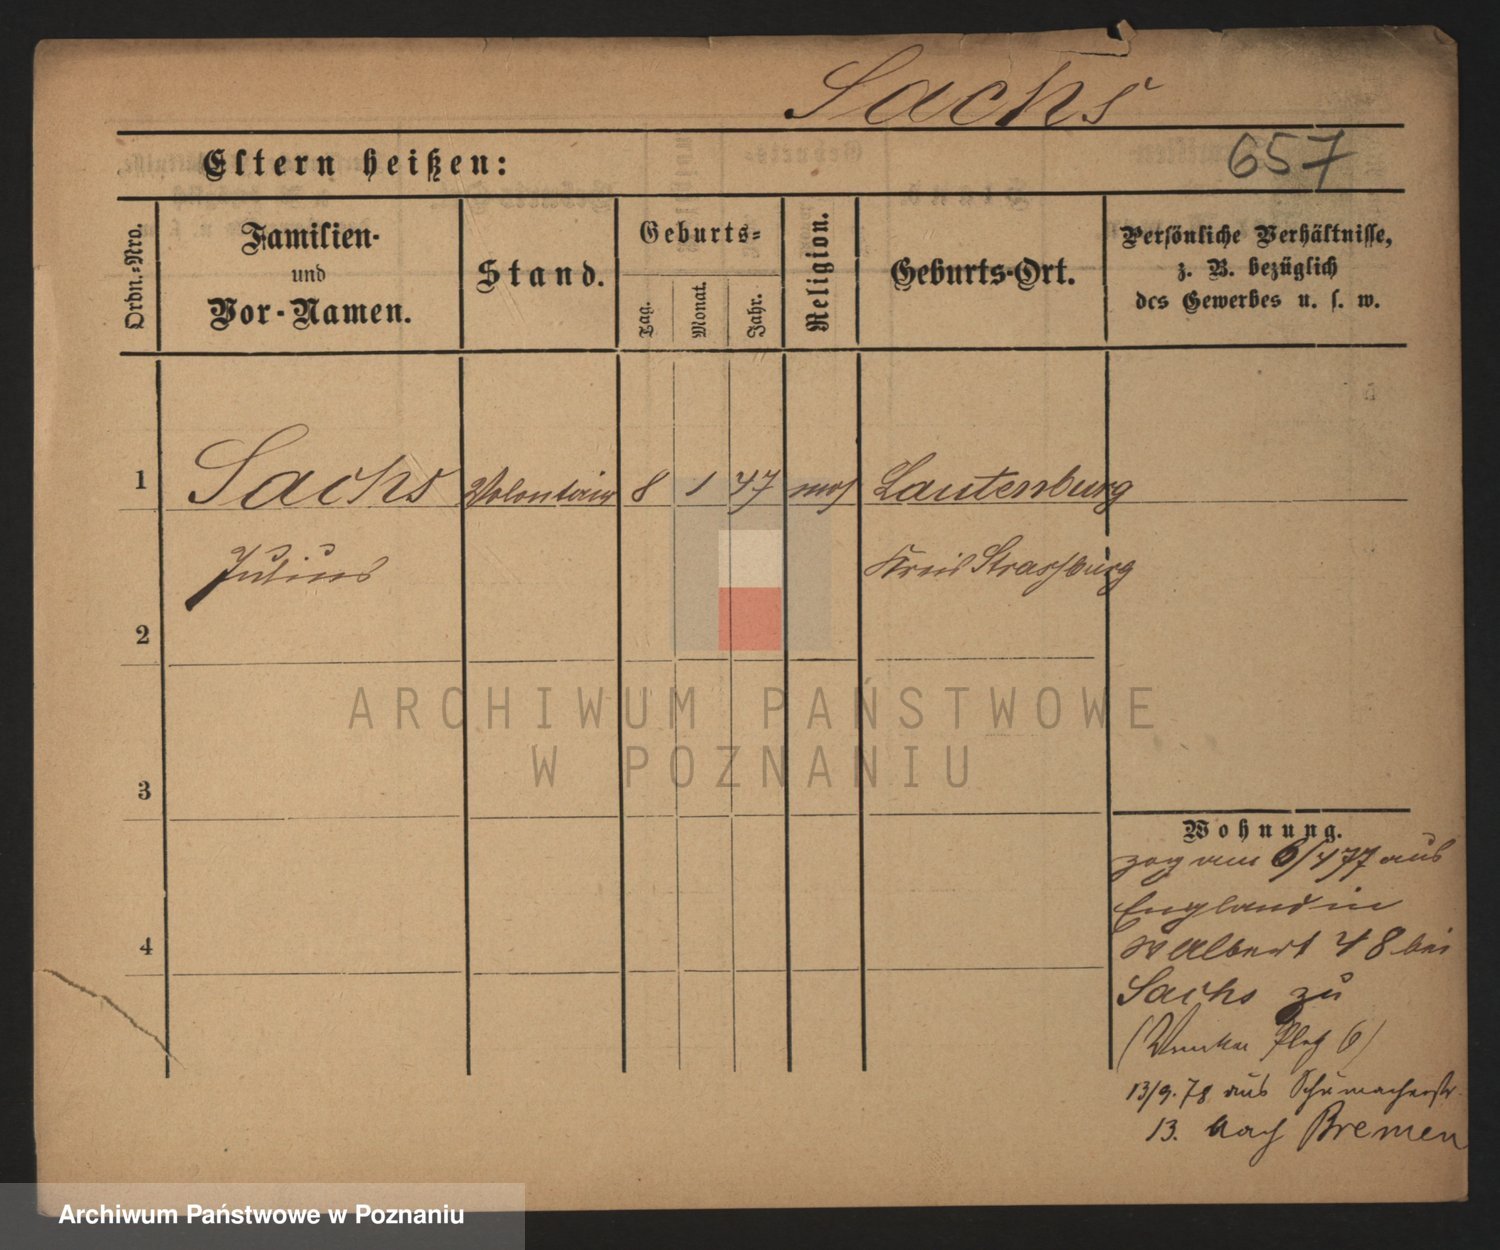 Sachs
657
Eltern heißen:
Ordn.-Nro.
Familien-
und
Vor-Namen.
Stand.
Geburts-
Tag.
Monat.
Jahr.
Religion.
Geburts-Ort.
Persönliche Verhältnisse,
z. B. bezüglich
des Gewerbes u. s. w.
1 Sachs Volontair 8 1 47 mos Lautenburg
Julius Kreis Strassburg
2
3
4
Wohnung.
zog am 6/4 77 aus
England in
Albert 48 bei
Sachs zu
6)
13/9. 78 aus Schumacherstr.
13. nach Bremen
ARCHIWUM PAŃSTWOWE
W POZNANIU
Archiwum Państwowe w Poznaniu